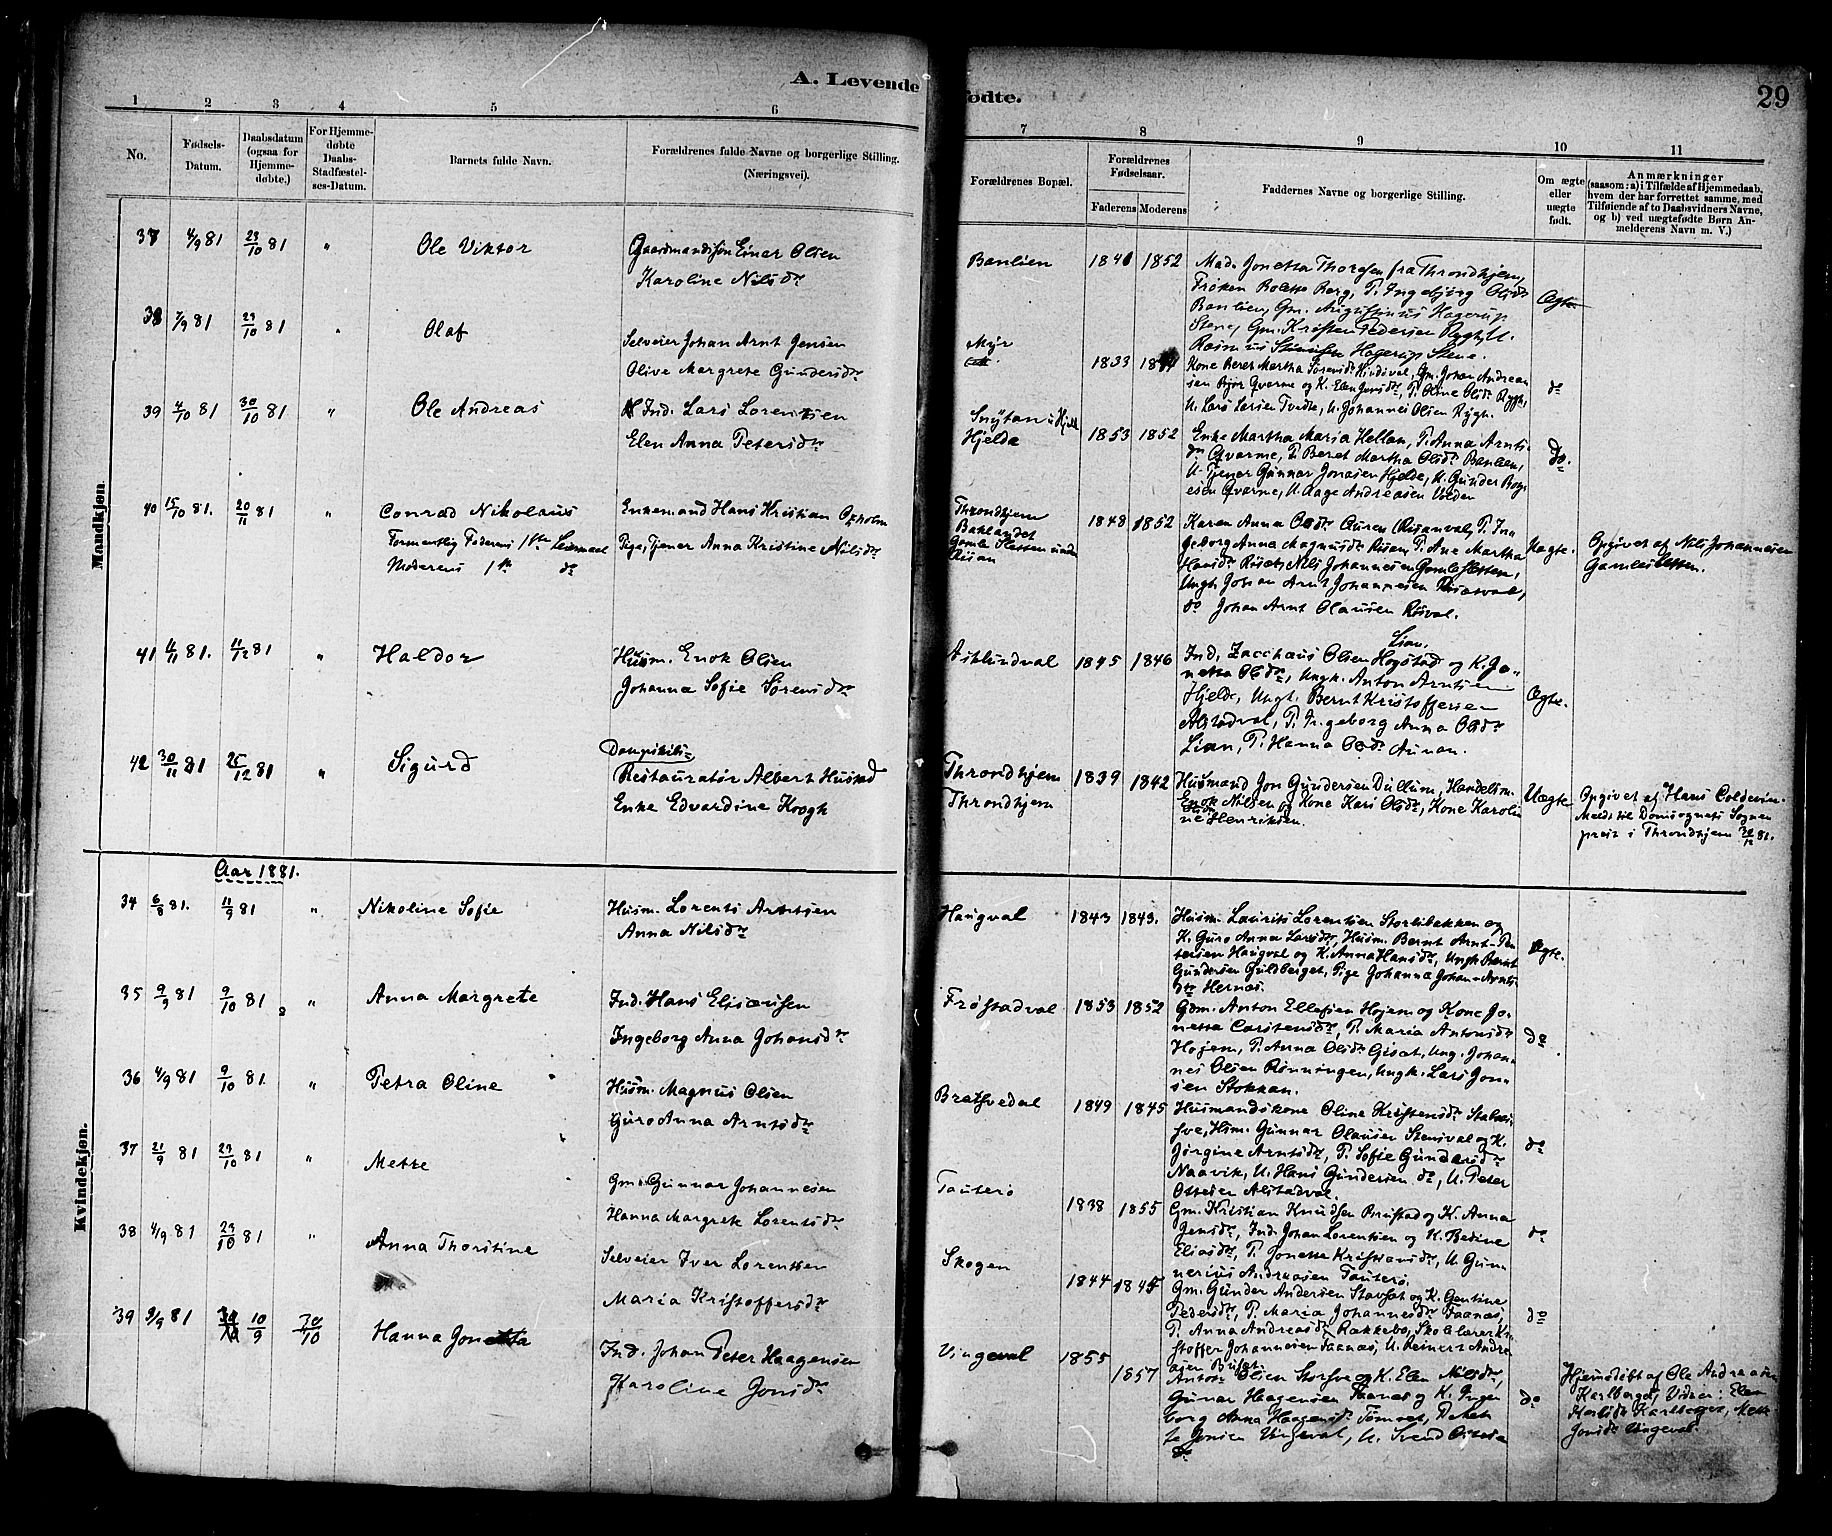 A. Levende
fødte.
29
1 2 3 4 5 6 7 8 9 10 11
No.
Fødsels-
Datum.
Daabsdatum
(ogsaa for
Hjemme-
døbte.)
For Hjemme-
døbte
Daabs-
Stadfæstel-
ses-Datum.
Barnets fulde Navn.
Forældrenes fulde Navne og borgerlige Stilling.
(Næringsvei).
Forældrenes Bopæl.
Forældrenes
Fødselsaar.
Faderens Moderens
Faddernes Navne og borgerlige Stilling.
Om ægte
eller
uægte
født.
Anmærkninger
(saasom: a) i Tilfælde af Hjemmedaab,
hvem der har forrettet samme, med
Tilføiende af to Daabsvidners Navne,
og b) ved uægtefødte Børn An-
melderens Navn m. V.)
Mandkjøn.
37 4/9 81 23/10 81 " Ole Viktor
Gaardmandssøn Einar Olsen
Karoline Nilsdr
Banlien 1852
Mad. Jonetta Thorgsen fra Throndhjem,
Frøken Bolette Berg, P. Ingebjørg Olsdr
Banlien, Gm. Augustinus Hagerup
Stene, Gm. Kristen Pedersen Ryghll
Rasmus Hagerup Stene.
Ægte
38 7/9 81 23/10 81 " Olaf
Selveier Johan Arnt Jensen
Olive Margrete Gundersdr
Myr
1833
Kone Beret Martha Sørensdr Gm. Johan Andrea
sen Bjør Qvarme og K. Elen Jensdr, P. Oline Olsdr Rygh,
U. Lars Larsen Tvedte, U. Johannes Olsen Rygh.
do
39 4/10 81 30/10 81 " Ole Andreas
Ind. Lars Lorentsen
Elen Anna Petersdr
Hjelde 1853 1852
Enke Martha Maria Hellan, P. Anna Arnts
dr Qvarme, P. Beret Martha Olsdr Banlien,
U. Tjener Gunnar Jonasen Hjelde, U. Gunder Boy
esen Qvarme, U. Aage Andreasen Volden
do.
40 15/10 81. 20/11 81 " Conrad Nikolaus
Formentlig Faderens 1ste Leiermaal
Moderens 1ste do
Enkemand Hans Kristian Oxholm
Pige, Tjener Anna Kristine Nilsdr
Throndhjem
Baklandet
Gamle Sletten under
Risan
1848 1852
Karen Anna Olsdr Auren Risanval, P. In
geborg Anna Magnusdr Risan, P. Ane Martha
Hansdr Nils Johannesen Gamle Sletten,
Ungk Johan Arnt Johannesen
do Johan Arnt Olausen
Uægte.
Opgivet af Nils Johannesen
Gamlesletten.
41 11/11 81. 11/12 81 " Haldor
Husm. Enok Olsen
Johanna Sofie Sørensdr
Asklundval 1845 1846
Lian.
Ind. Zacchaus Olsen Hogstad og K. Jo-
netta Olsdr, Ungk. Anton Arntsen
Hjelde, Ungk. Bernt Kristoffersen
Alstadval, P. Ingeborg Anna Olsdr
Lian, P. Hanna Olsdr Aunan.
Ægte.
42 30/11 81 25/12 81 " Sigurd
Dampskibs-
Restauratør Albert Hustad
Enke Edvardine Koogh
Throndhjem
Throndhjem
1839 1842
Husmand Jon Gundersen Dullum, Handelsm.
Enok Nilsen og Kone Kari Olsdr, Kone Karoli
ne Henriksen.
Uægte
Opgivet af Hans Coldevin.
Meldt til Domsognets Sogne
prest i Throndhjem 81.
Kvindekjøn.
Aar 1881.
34 6/8 81. 11/9 81 " Nikoline Sofie
Husm. Lorents Arntsen
Anna Nilsdr
Haugval 1843 1843.
Husm. Laurits Lorentsen Storlibakken og
K. Guro Anna Larsdr, Husm. Bernt Arnt Pe
tersen Haugval og K. Anna Hansdr, Ungk Bernt
Gundersen Guldberget, Pige Johanna Johan Arnts
dtr Hernæs.
Ægte.
35 9/9 81 9/10 81 " Anna Margrete
Ind. Hans Elisæusen
Ingeborg Anna Johansdr
Frøstadval 1853 1852
Gdm. Anton Ellefsen Hojem og Kone Jo-
netta Carstensdr, P. Maria Antonsdr
Hojem, P. Anna Olsdr Ung. Johan-
nes Olsen Rønningen, Ungk. Lars Jon-
sen Stokkan.
do
36 4/9 81 9/10 81. " Petra Oline
Husm. Magnus Olsen
Guro Anna Arntsdr
1849 1845
Husmandskone Oline Kristensdr
Husm. Gunnar Olausen Stensval og K.
Jørgine Arntsdr, P. Sofie Gundersdr
Naavik, U. Hans Gundersen do, U. Peter
Ottesen Alstadval.
do
37 21/9 81 23/10 81 " Mette
Gm. Gunnar Johannesen
Hanna Margrete Lorentsdr
Tauterø 1838 1855
Gm. Kristian Knudsen Brustad og K. Anna
Jensdr, Ind. Johan Lorentsen og K. Bedine
Eliasdr, P. Jonette Kristiansdr, U. Gun-
nerius Andreasen Tauterø.
do
38 4/9 81 23/10 81 " Anna Thorstine
Selveier Iver Lorentsen
Maria Kristoffersdr
Skogen 1844 1845
Gm. Gunder Andersen Stavset og K. Gentine
Pedersdr, P. Maria Johannesdr Faanes,
P. Anna Andreasdr Rakkebo, Skolelærer Kri
stoffer Johannesen Faanes, U. Reinert Andre
asen
do
39 9/9 81 10/9 30/10 Hanna Jonetta
Ind. Johan Peter Haagensen
Karoline Jonsdr
Vingeval 1855
1857
Anton Olsen Storsve og K. Elen Nilsdr,
Gunar Haagensen Faanes og K. Inge
borg Anna Haagensdr
Jonsen Vingeval, U. Svend
do
do
Hjemdøbt af Ole Andreasen
Karlberget, Vidner: Elen
Karlberget, Mette
Jonsdr Vingeval.